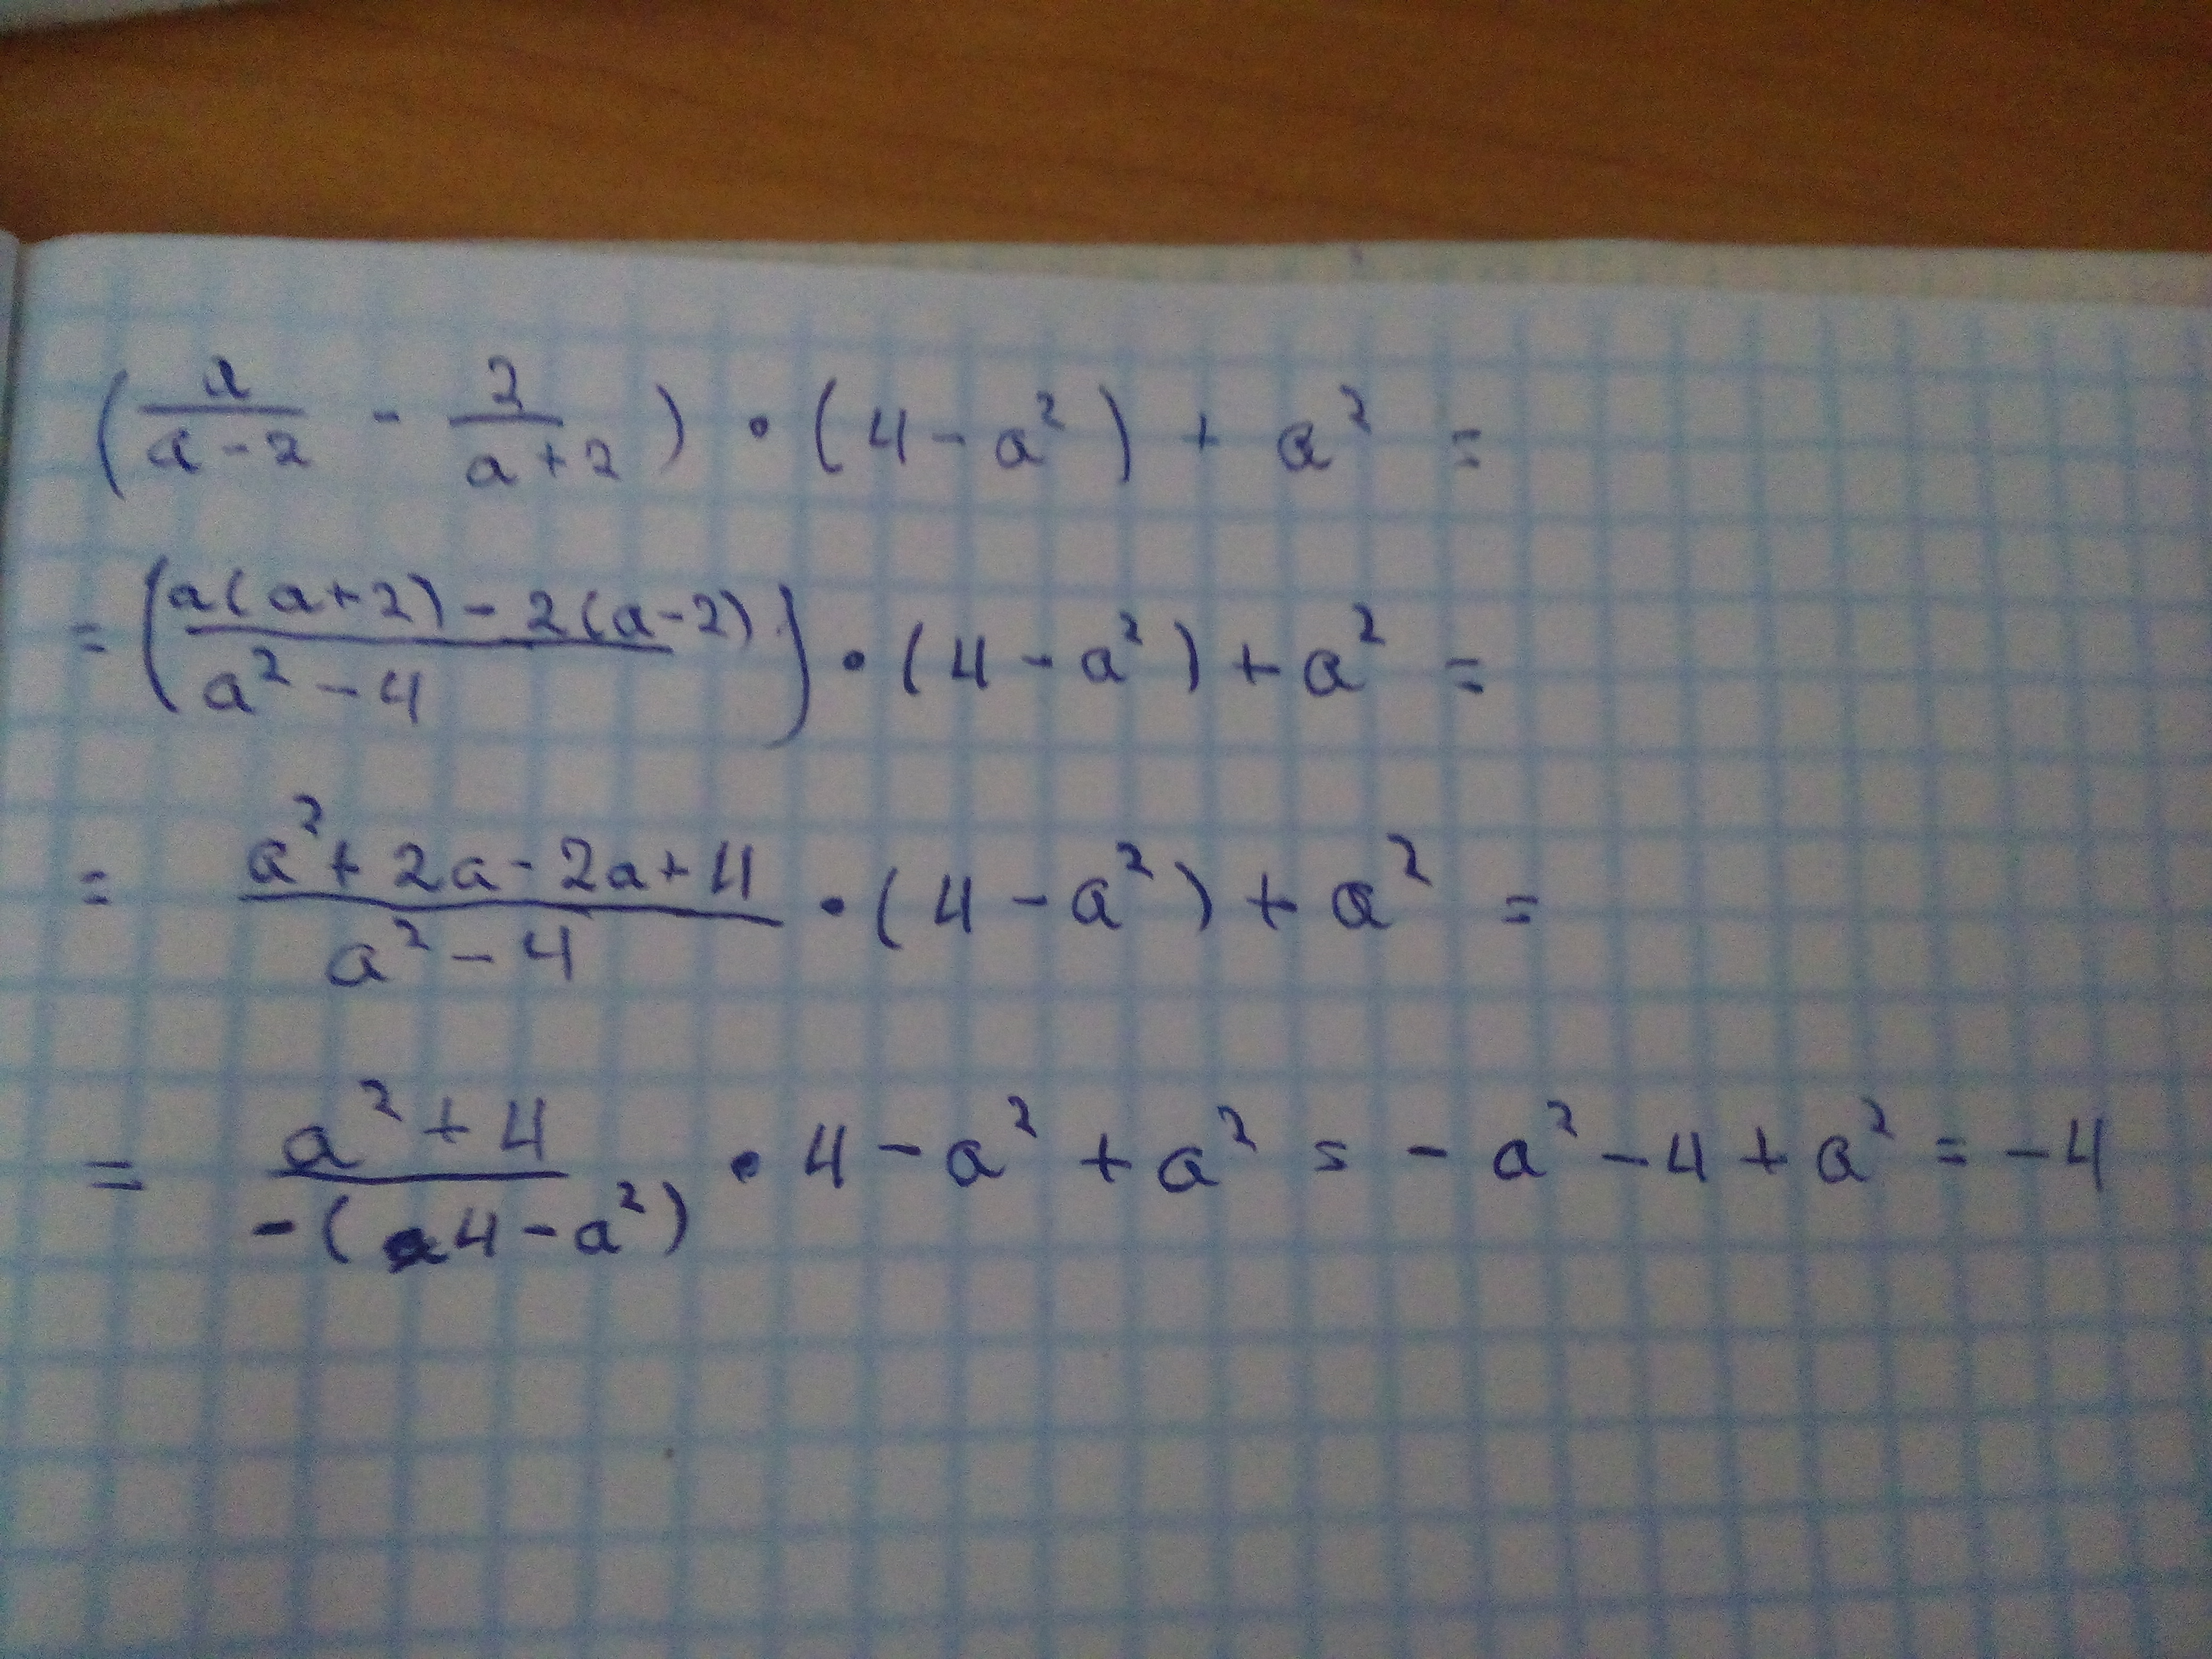 (a/(a-2) - 2/(a+2)) · (4 - a²) + a² =
= ((a(a+2) - 2(a-2))/(a² - 4)) · (4 - a²) + a² =
= (a² + 2a - 2a + 4)/(a² - 4) · (4 - a²) + a² =
= (a² + 4)/(-(4 - a²)) · 4 - a² + a² = - a² - 4 + a² = -4